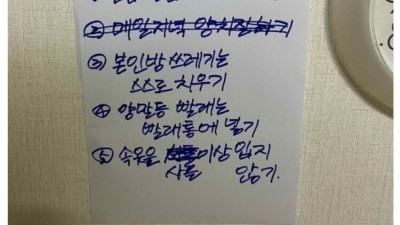 ② 매일저녁 양치질하기
③ 본인방 쓰레기는
스스로 치우기
④ 양말등 빨래는
빨래통에 넣기
⑤ 속옷을 이상 입지
사흘 않기.